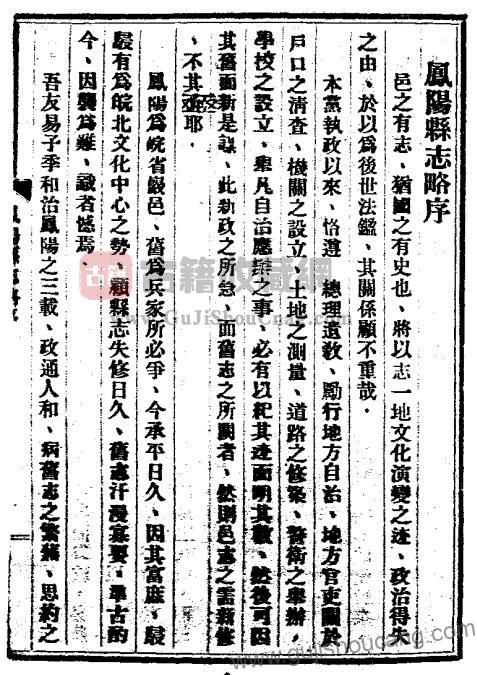 鳳陽縣志略序
邑之有志、猶國之有史也、將以志一地文化演變之迹、政治得失
之由、於以為後世法鑑、其關係顧不重哉．
本黨執政以來、恪遵　總理遺教、勵行地方自治、地方官吏關於
戶口之清查、機關之設立、土地之測量、道路之修築、警衛之舉辦、
學校之設立、舉凡自治應辦之事、必有以紀其迹而明其數、然後可因
其舊而新是謀、此新政之所急、而舊志之所闕者、然則邑志之需新修
、不其亟耶．
鳳陽為皖省嚴邑、舊為兵家所必爭、今承平日久、因其富庶、駸
駸有為皖北文化中心之勢、顧縣志失修日久、舊志汗漫寡要、準古酌
今、因襲為難、識者憾焉、
吾友易子季和治鳳陽之三載、政通人和、病舊志之繁蕪、思約之
古籍收藏網
www.GuJiShouCang.com
www.gujishoucang.com